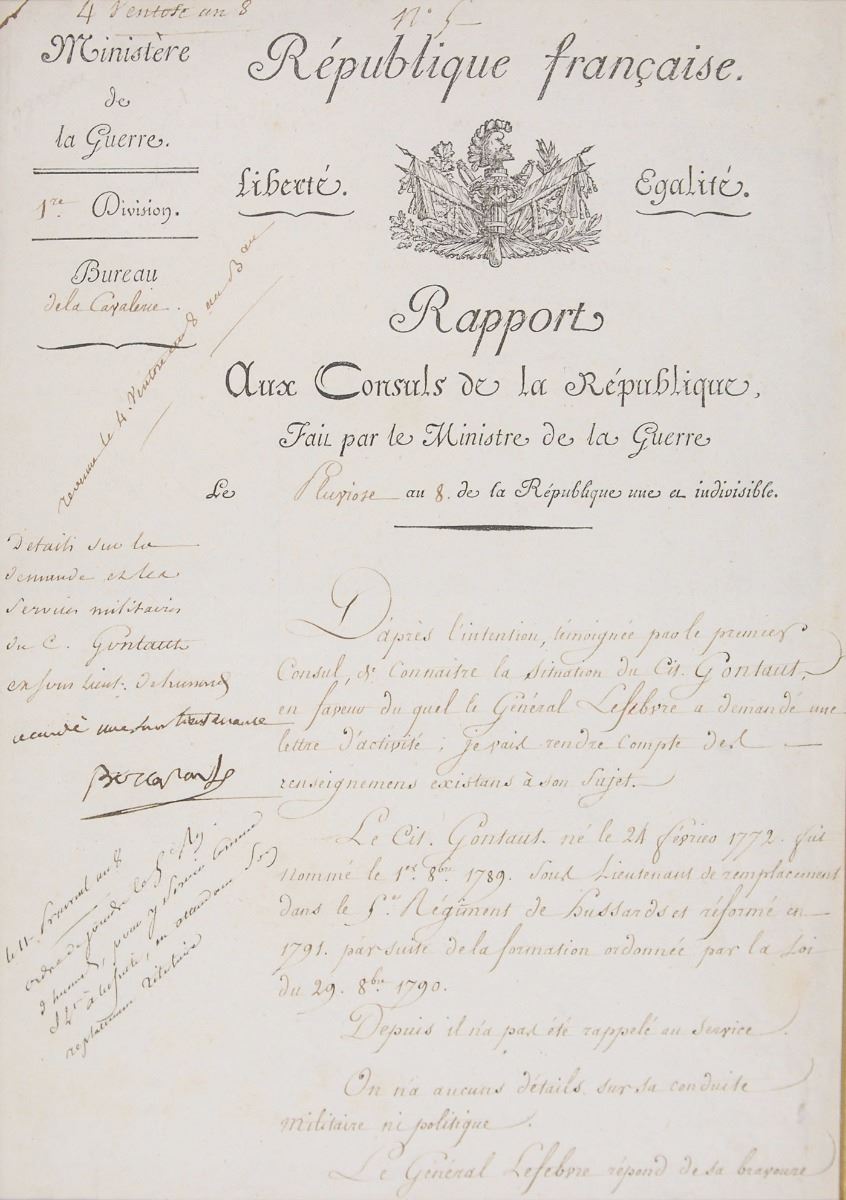 4 Ventose an 8
N° 5
Ministère
de
la Guerre.
1re Division.
Bureau
de la Cavalerie.
République française.
Liberté. Egalité.
Rapport
Aux Consuls de la République,
Fait par le Ministre de la Guerre
Le Pluviose an 8. de la République une et indivisible.
revenu le 4. Ventose an 8 au B au
Détails sur la
demande et les
services militaires
du C. Gontaut
ex sous Lieut. d'hussards
accordé une sous lieutenance
D'après l'intention, témoignée par le premier
Consul, de connaitre la situation du Cit. Gontaut,
en faveur du quel le Général Lefebvre a demandé une
lettre d'activité; je vais rendre compte des
renseignemens existans à son sujet.
Le Cit. Gontaut. né le 24 février 1772. fut
nommé le 1er 8bre 1789. Sous Lieutenant de remplacement
dans le 5e Régiment de hussards et réformé en
1791. par suite de la formation ordonnée par la Loi
du 29. 8bre 1790.
Depuis il n'a pas été rappelé au service.
On n'a aucuns détails sur sa conduite
militaire ni politique.
Le Général Lefebvre répond de sa bravoure
le 11 Prairial an 8
ordre de joindre le 5e Rg
d'hussards, pour y servir comme
S Lt à la suite, en attendant son
remplacement titulaire